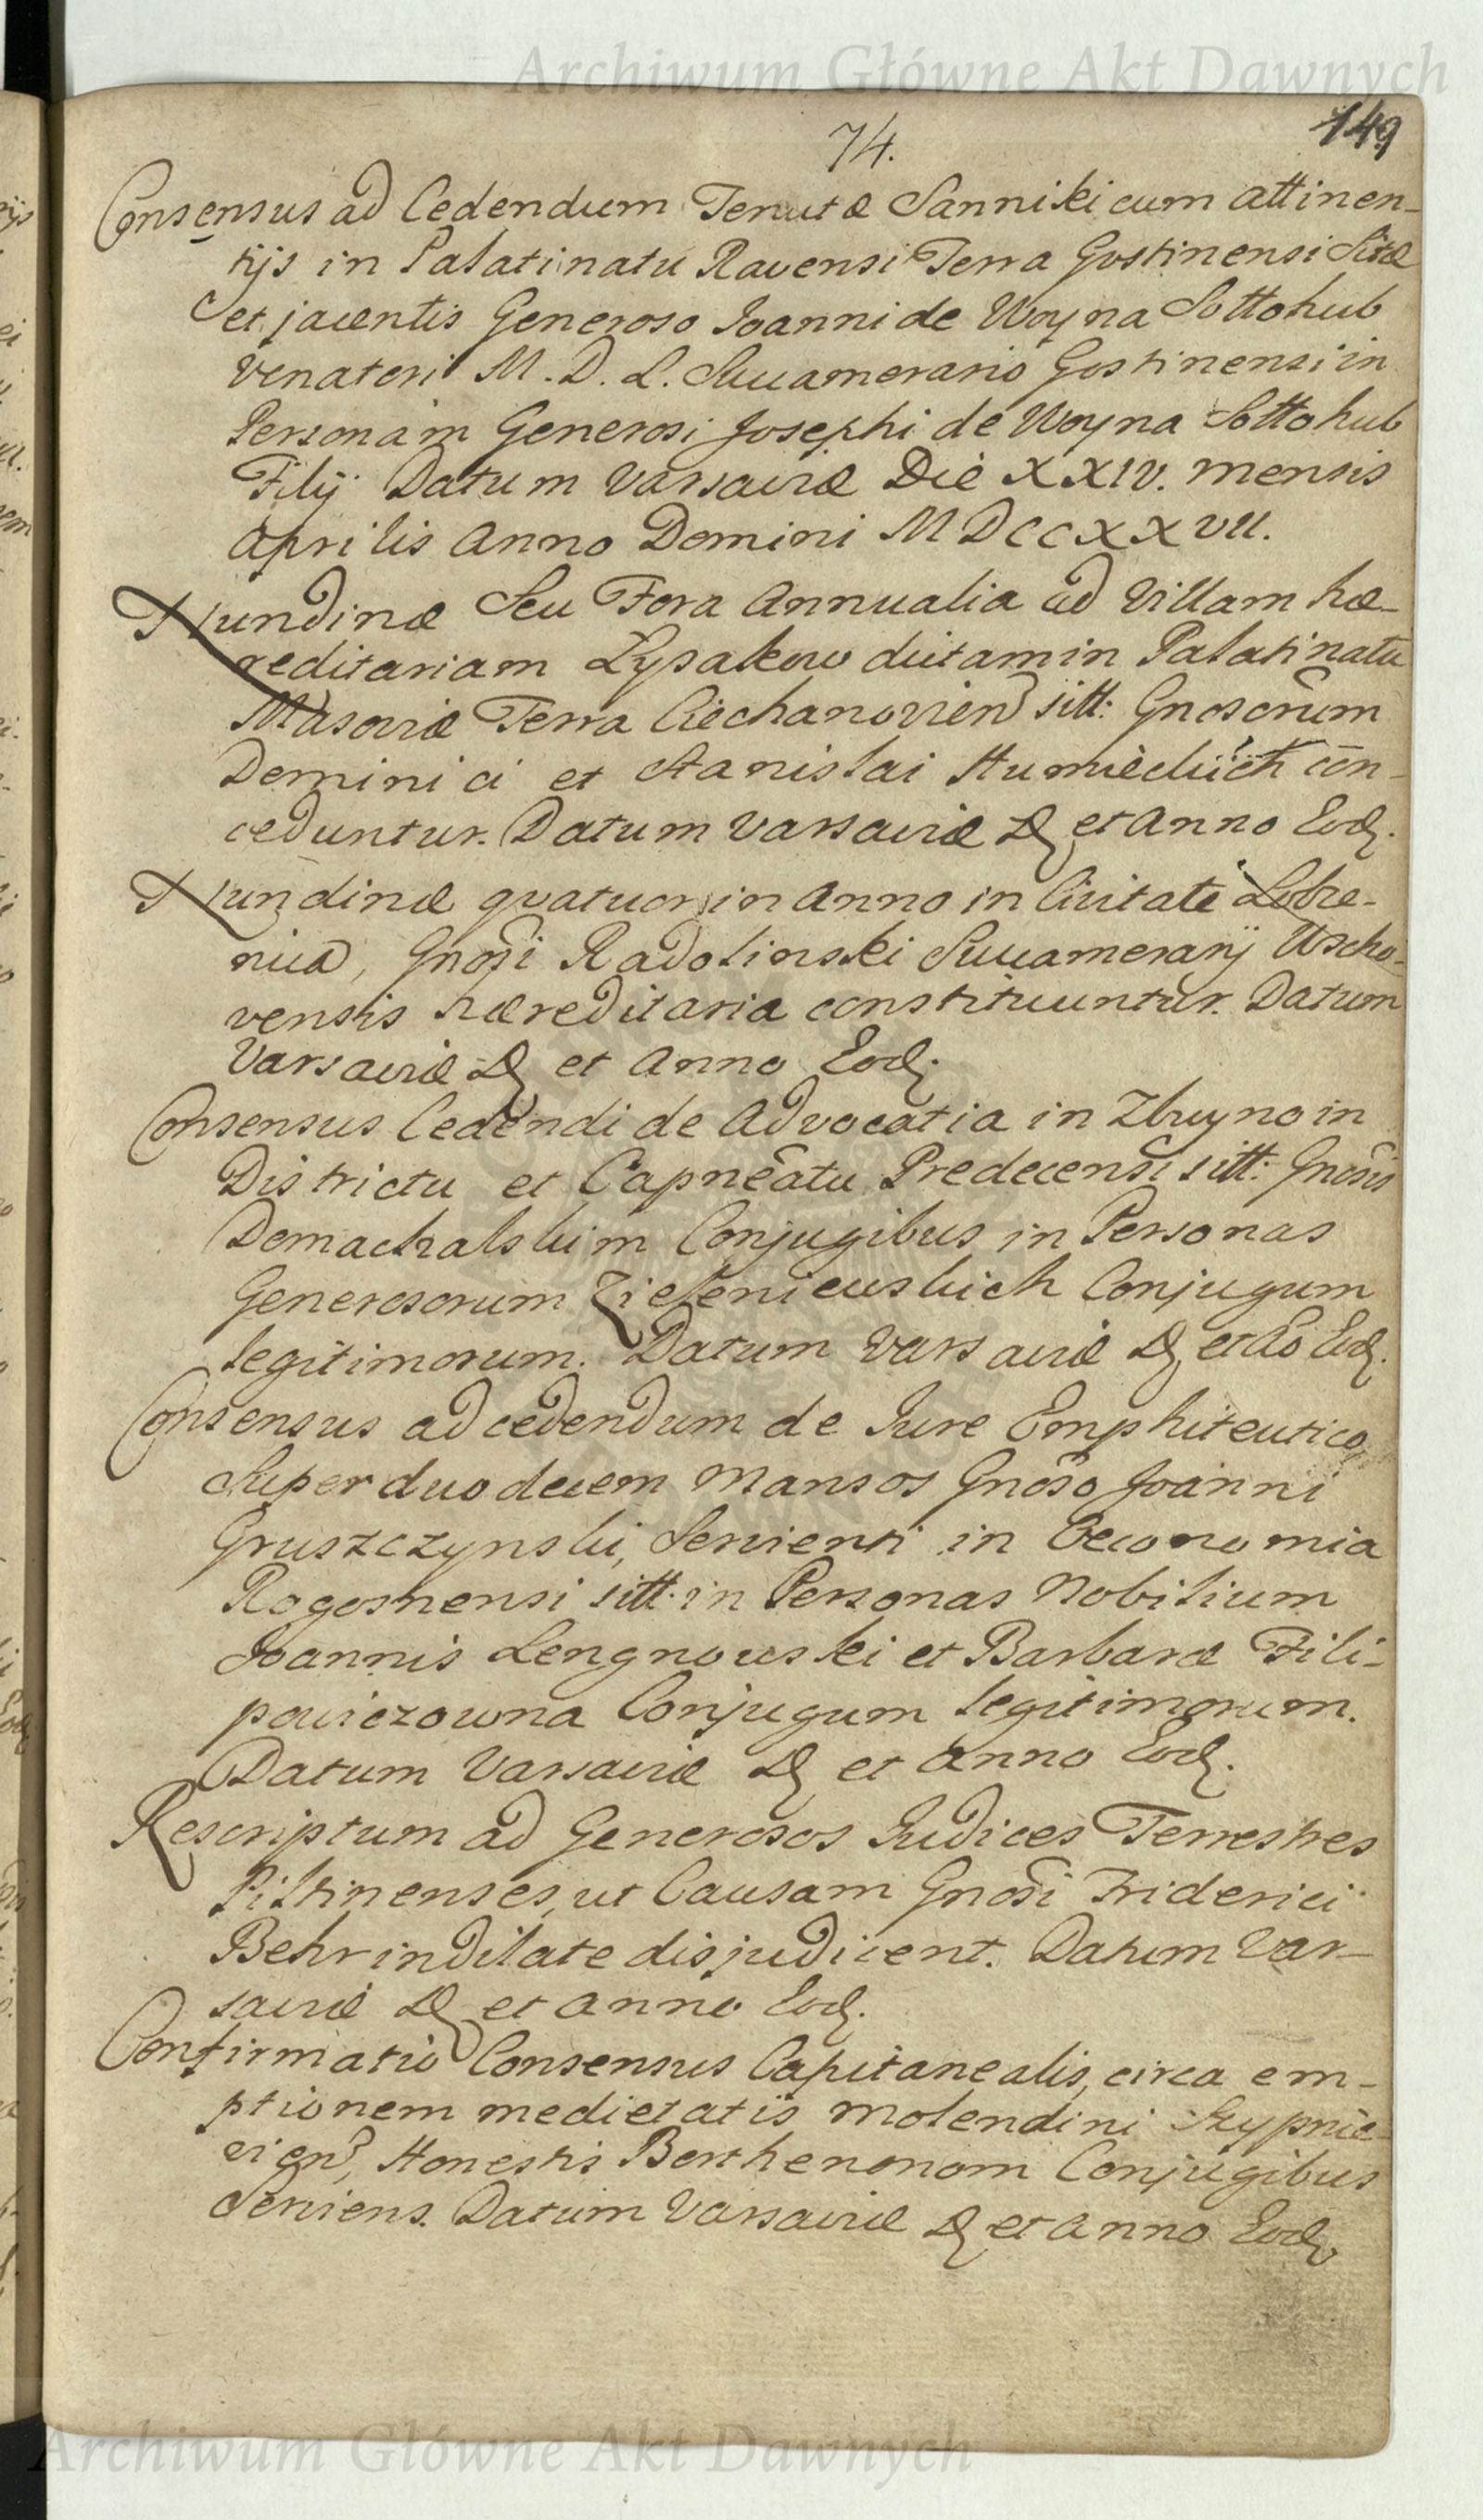 Archiwum Główne Akt Dawnych
74.
149
Consensus ad Cedendum Tenutæ Sanniki cum attinen-
tijs in Palatinatu Ravensi Terra Gostinensi Sitæ
et jacentis Generoso Joanni de Woyna Sottohub
Venatori M. D. L. Succamerario Gostinensi in
Personam Generosi Josephi de Woyna Sottohub
Filij. Datum Varsaviæ Die XXIV. mensis
Aprilis Anno Domini MDCCXXVII.
Nundinæ Seu Fora Annualia ad Villam hæ-
reditariam Lysakow dictam in Palatinatu
Masoviæ Terra Ciechanovien sitt: Gnosorum
Dominici et Stanislai Humieckich con-
ceduntur. Datum Varsaviæ D et Anno Eod.
Nundinæ quatuor in Anno in Civitate Lobze-
nica, Gnosi Radolinski Succamerarij Wscho-
vensis hæreditaria constituuntur. Datum
Varsaviæ D et Anno Eod.
Consensus Cedendi de Advocatia in Zbuyno in
Districtu et Capneatu Predecensi sitt: Gnosis
Domachalskim Conjugibus in Personas
Generosorum Zieleniewskich Conjugum
legitimorum. Datum Varsaviæ D et Ao Eod.
Consensus ad cedendum de Jure Emphiteutico
Super duodecem Mansos Gnoso Joanni
Gruszczynski, Servienti in Oeconomia
Rogosnensi sitt: in Personas Nobilium
Joannis Lengnowski et Barbaræ Fili-
powiczowna Conjugum legitimorum.
Datum Varsaviæ D et Anno Eod.
Rescriptum ad Generosos Judices Terrestres
Piltinenses, ut Causam Gnosi Friderici
Behr indilate disjudicent. Datum Var-
saviæ D et Anno Eod.
Confirmatio Consensus Capitanealis, circa em-
ptionem medietatis Molendini
Honestis Conjugibus
Serviens. Datum Varsaviæ D et Anno Eod.
Archiwum Główne Akt Dawnych